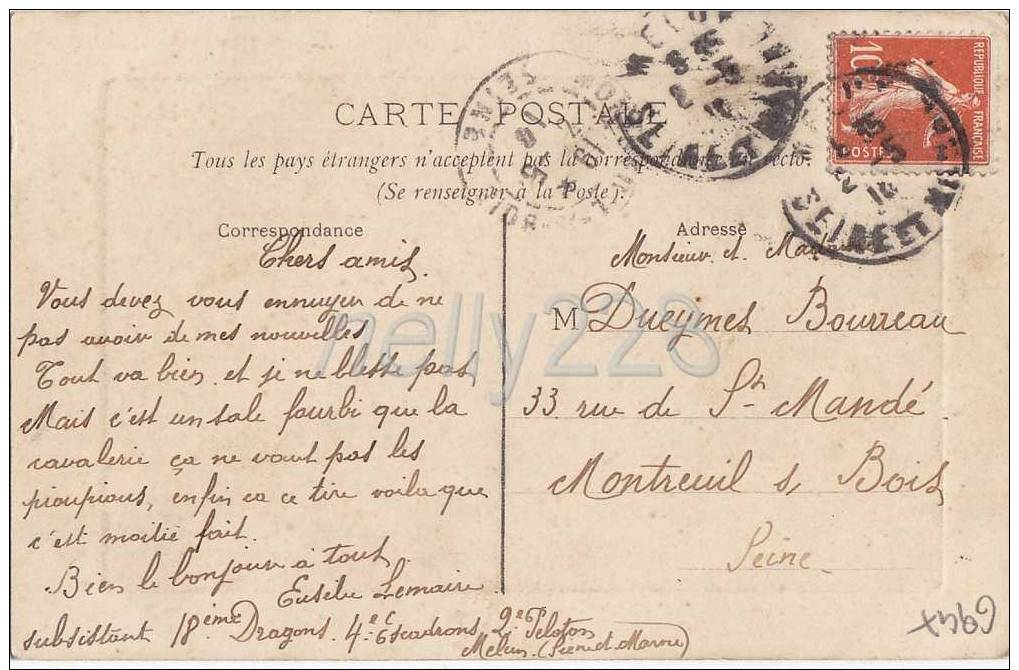 CARTE POSTALE
Tous les pays étrangers n'acceptent pas la correspondance au recto.
(Se renseigner à la Poste).
Correspondance
Chers amis.
Vous devez vous ennuyer de ne
pas avoir de mes nouvelles
Tout va bien et je ne blesse pas
Mais c'est un sale fourbi que la
cavalerie ça ne vaut pas les
pioupious, enfin ca ce tire voila que
c'est moitié fait.
Bien le bonjour à tout
Eusèbe Lemaire
subsistant 18ème Dragons. 4e Escadrons 2e Peloton
Melun (Seine et Marne)
Adresse
Monsieur et Madame
M Dueymes Bourreau
33 rue de St Mandé
Montreuil s, Bois
Seine
REPUBLIQUE FRANÇAISE
10
POSTES
MELUN
SEINE ET
SEINE ET
SEINE
nelly228